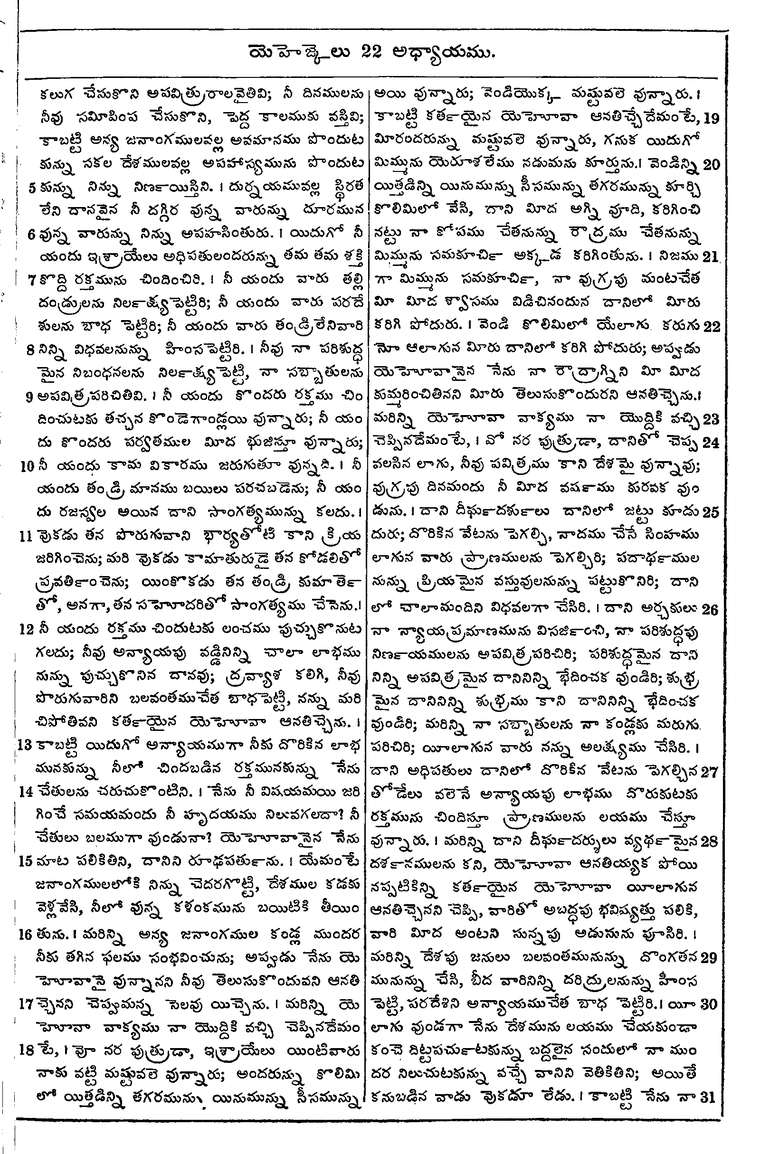 యెహెజ్కేలు 22 అధ్యాయము.
కలుగ చేసుకొని అపవిత్రురాలవైతివి; నీ దినములను
నీవు సమీపింప చేసుకొని, పెద్ద కాలముకు వస్తివి;
కాబట్టి అన్య జనాంగములవల్ల అవమానము పొందుట
కున్ను సకల దేశములవల్ల అపహాస్యమును పొందుట
5 కున్ను నిన్ను నిర్ణయిస్తిని. । దుర్నయమువల్ల స్థిరత
లేని దానవైన నీ దగ్గిర వున్న వారున్ను దూరమున
6 వున్న వారున్ను నిన్ను అపహసింతురు. । యిదుగో నీ
యందు ఇశ్రాయేలు అధిపతులందరున్ను తమ తమ శక్తి
7 కొద్ది రక్తమును చిందించిరి. । నీ యందు వారు తల్లి
దండ్రులను నిర్లక్ష్యపెట్టిరి; నీ యందు వారు పరదే
శులను బాధ పెట్టిరి; నీ యందు వారు తండ్రిలేనివారి
8 నిన్ని విధవలనున్ను హింసపెట్టిరి. । నీవు నా పరిశుద్ధ
మైన నిబంధనలను నిర్లక్ష్యపెట్టి, నా సబ్బాతులను
9 అపవిత్రపరిచితివి. । నీ యందు కొందరు రక్తము చిం
దించుటకు తచ్చన కొండెగాండ్లయి వున్నారు; నీ యం
దు కొందరు పర్వతముల మీద భుజిస్తూ వున్నారు;
10 నీ యందు కామ వికారము జరుగుతూ వున్నది. । నీ
యందు తండ్రి మానము బయిలు పరచబడెను; నీ యం
దు రజస్వల అయిన దాని సాంగత్యమున్ను కలదు. ।
11 వొకడు తన పొరుగువాని భార్యతోటి కాని క్రియ
జరిగించెను; మరి వొకడు కామాతురుడై తన కోడలితో
ప్రవర్తించెను; యింకొకడు తన తండ్రి కుమార్తె
తో, అనగా, తన సహోదరితో సాంగత్యము చేసెను.।
12 నీ యందు రక్తము చిందుటకు లంచము పుచ్చుకొనుట
గలదు; నీవు అన్యాయపు వడ్డినిన్ని చాలా లాభము
నున్ను పుచ్చుకొనిన దానవు; ద్రవ్యాశ కలిగి, నీవు
పొరుగువారిని బలవంతముచేత బాధపెట్టి, నన్ను మరి
చిపోతివని కర్తయైన యెహోవా ఆనతిచ్చెను. ।
13 కాబట్టి యిదుగో అన్యాయముగా నీకు దొరికిన లాభ
మునకున్ను నీలో చిందబడిన రక్తమునకున్ను నేను
14 చేతులను చరుచుకొంటిని. । నేను నీ విషయమయి జరి
గించే సమయమందు నీ హృదయము నిలువగలదా? నీ
చేతులు బలముగా వుండునా? యెహోవానైన నేను
15 మాట పలికితిని, దానిని రూఢపర్తును. । యేమంటే
జనాంగములలోకి నిన్ను చెదరగొట్టి, దేశముల కడకు
వెళ్లవేసి, నీలో వున్న కళంకమును బయిటికి తీయిం
16 తును. । మరిన్ని అన్య జనాంగముల కండ్ల ముందర
నీకు తగిన ఫలము సంభవించును; అప్పుడు నేను యె
హోవానై వున్నానని నీవు తెలుసుకొందువని ఆనతి
17 చ్చెనని చెప్పుమన్న సెలవు యిచ్చెను. । మరిన్ని యె
హోవా వాక్యము నా యొద్దికి వచ్చి చెప్పినదేమం
18 టే, । వో నర పుత్రుడా, ఇశ్రాయేలు యింటివారు
నాకు వట్టి మష్టువలె వున్నారు; అందరున్ను కొలిమి
లో యిత్తడిన్ని తగరమును యినుమున్ను సీసమున్ను
అయి వున్నారు; వెండియొక్క మష్టువలె వున్నారు.।
కాబట్టి కర్తయైన యెహోవా ఆనతిచ్చేదేమంటే, 19
మీరందరున్ను మష్టువలె వున్నారు, గనుక యిదుగో
మిమ్మును యెరూశలేము నడుమను కూర్తును. । వెండిన్ని 20
యిత్తడిన్ని యినుమున్ను సీసమున్ను తగరమున్ను కూర్చి
కొలిమిలో వేసి, దాని మీద అగ్ని వూది, కరిగించి
నట్టు నా కోపము చేతనున్ను రౌద్రము చేతనున్ను
మిమ్మును సమకూర్చి అక్కడ కరిగింతును. । నిజము 21
గా మిమ్మును సమకూర్చి, నా వుగ్రపు మంటచేత
మీ మీద శ్వాసము విడిచినందున దానిలో మీరు
కరిగి పోదురు. । వెండి కొలిమిలో యేలాగు కరుగు 22
నో ఆలాగున మీరు దానిలో కరిగి పోదురు; అప్పుడు
యెహోవానైన నేను నా రౌద్రాగ్నిని మీ మీద
కుమ్మరించితినని మీరు తెలుసుకొందురని ఆనతిచ్చెను.।
మరిన్ని యెహోవా వాక్యము నా యొద్దికి వచ్చి 23
చెప్పినదేమంటే, । వో నర పుత్రుడా, దానితో చెప్ప 24
వలసిన లాగు, నీవు పవిత్రము కాని దేశమై వున్నావు;
వుగ్రపు దినమందు నీ మీద వర్షము కురవక వుం
డును. । దాని దీర్ఘదర్శులు దానిలో జట్టు కూడు 25
దురు; దొరికిన వేటను పెగల్చి, నాదము చేసే సింహము
లాగున వారు ప్రాణములను పెగల్చిరి; పదార్థముల
నున్ను ప్రియమైన వస్తువులనున్ను పట్టుకొనిరి; దాని
లో చాలామందిని విధవలగా చేసిరి. । దాని అర్చకులు 26
నా న్యాయప్రమాణమును విసర్జించి, నా పరిశుద్ధపు
నిర్ణయములను అపవిత్రపరిచిరి; పరిశుద్ధమైన దాని
నిన్ని అపవిత్రమైన దానినిన్ని భేదించక వుండిరి; శుభ్ర
మైన దానినిన్ని శుభ్రము కాని దానినిన్ని భేదించక
వుండిరి; మరిన్ని నా సబ్బాతులను నా కండ్లకు మరుగు
పరిచిరి; యీలాగున వారు నన్ను అలక్ష్యము చేసిరి. ।
దాని అధిపతులు దానిలో దొరికిన వేటను పెగల్చిన 27
తోడేలు వలెనే అన్యాయపు లాభము దొరుకుటకు
రక్తమును చిందిస్తూ ప్రాణములను లయము చేస్తూ
వున్నారు. । మరిన్ని దాని దీర్ఘదర్శులు వ్యర్థమైన 28
దర్శనములను కని, యెహోవా ఆనతియ్యక పోయి
నప్పటికిన్ని కర్తయైన యెహోవా యీలాగున
ఆనతిచ్చెనని చెప్పి, వారితో అబద్ధపు భవిష్యత్తు పలికి,
వారి మీద అంటని సున్నపు అడుసును పూసిరి. ।
మరిన్ని దేశపు జనులు బలవంతమునున్ను దొంగతన 29
మునున్ను చేసి, బీద వారినిన్ని దరిద్రులనున్ను హింస
పెట్టి, పరదేశిని అన్యాయముచేత బాధ పెట్టిరి. । యీ 30
లాగు వుండగా నేను దేశమును లయము చేయకుండా
కంచె దిట్టపర్చుటకున్ను బద్దలైన సందులో నా ముం
దర నిలుచుటకున్ను వచ్చే వానిని వెతికితిని; అయితే
కనుబడిన వాడు వొకడూ లేడు. । కాబట్టి నేను నా 31